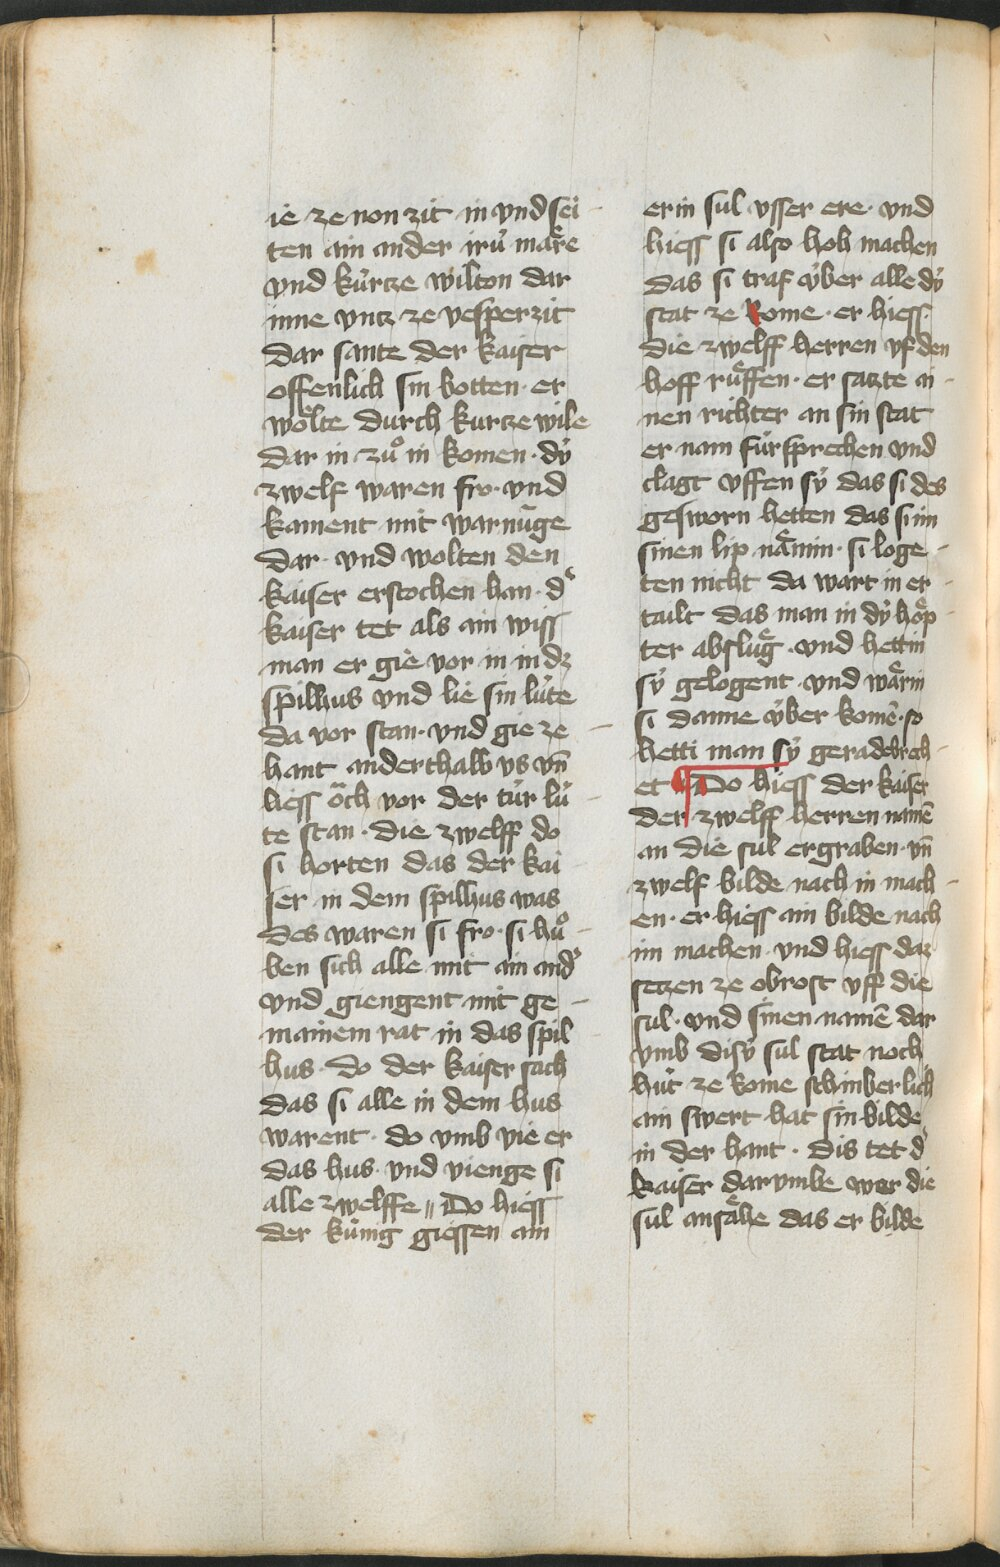 ie ze non zit in vnd sei
ten ain ander irù märe
vnd kùrtze wilton dar
inne vntz ze vesper zit
dar sante der kaiser
offenlich sin botten · er
wölte durch kurtze wile
dar in zuͦ in komen · dÿ
zwelf waren fro · vnd
kament mit warnūge
dar · vnd wolten den
kaiser erstochen han · d͛
kaiser tet als ain wiss
man er gie vor in in dz
spilhus vnd lie sin lùte
da vor stan · vnd gie ze
hant anderthalb vs vn̄
hiess öch vor der tùr lù
te stan · die zwelff do
si horten das der kai
ser in dem spilhus was
des waren si fro · si huͦ
ben sich alle mit ain and͛
vnd giengent mit ge
mainem rat in das spil
hus · do der kaiser sach
das si alle in dem hus
warent · do vmb vie er
das hus · vnd vienge si
alle zwelffe · Do hiess
der kùnig giessen ain
erin sul vsser ere · vnd
hiess si also hoh machen
das si traf ÿber alle dÿ
stat ze Rome · er hiess ·
die zwelff herren vf den
hoff ruͤffen · er satzte ai
nen richter an sin stat
er nam fùrsprechen vnd
clagt vffen sÿ das si des
gesworn hetten das si im
sinen lip nämin · si loge
ten nicht da wart in er
tailt das man in dÿ höp
ter abslüg · vnd hettin
sÿ gelogent · vnd wärin
si danne ÿber komē · so
hetti man sÿ geradebrech
et ¶ Do hiess der kaiser
der zwelff herren namē
an die sul ergraben · vn̄
zwelf bilde nach in mach
en · er hiess ain bilde nach
im machen · vnd hiess daz
setzen ze obrost vff die
sul · vnd sinen namē dar
vmb disÿ sul stat noch
hùt ze Rome schinberlich
ain swert hat sin bilde
in der hant · dis tet d͛
kaiser dar vmbe wer die
sul ansähe das er bilde